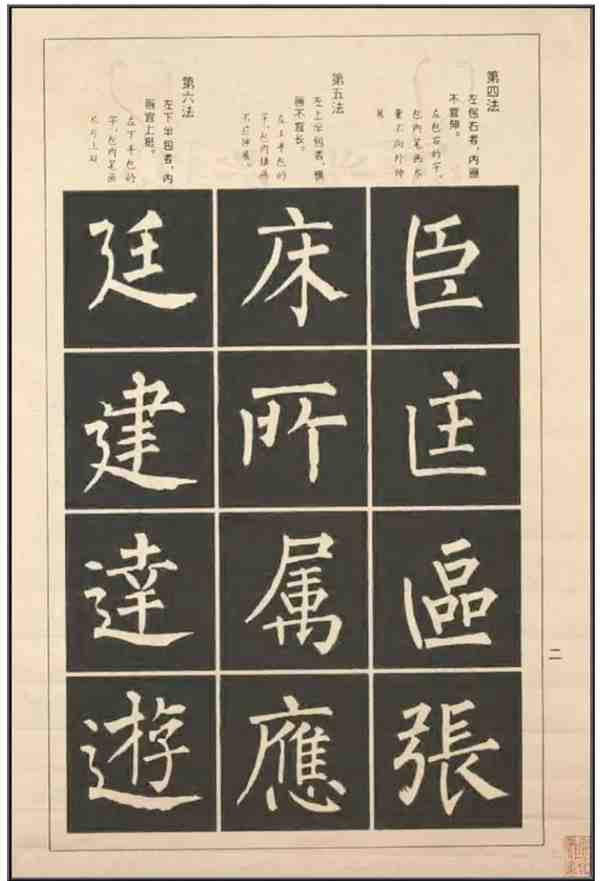 第四法
左包右者，内画
不宜伸。
左包右的字，
包内笔画尽
量不向外伸
展
臣匡區張
第五法
左上半包者，横
画不宜长。
左上半包的
字，包内横画
不应伸展。
床所属應
第六法
左下半包者，内
画宜上挺。
左下半包的
字，包内笔画
廷建達遊
二